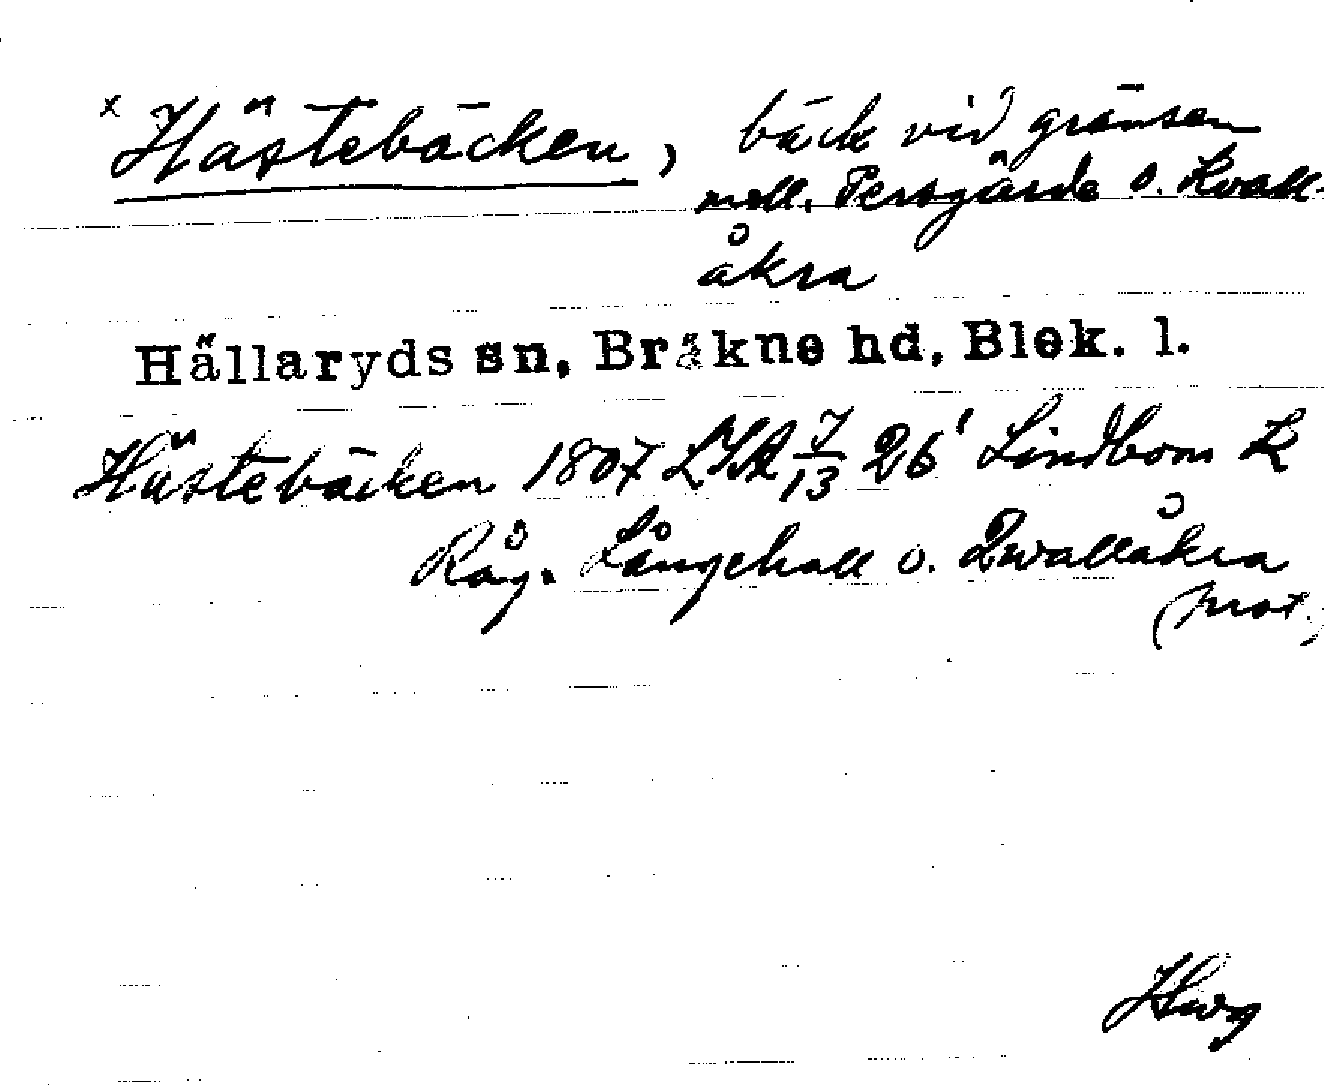 x Hästebäcken, bäck vid gränsen
mell. Persgärde o. Kvall-
åkra
Hällaryds sn, Bräkne hd, Blek. l.
Hästebäcken 1807 LSA 7/13 26' Lindbom K
Råg. Långehall o. Qwallåkra
(prot.)